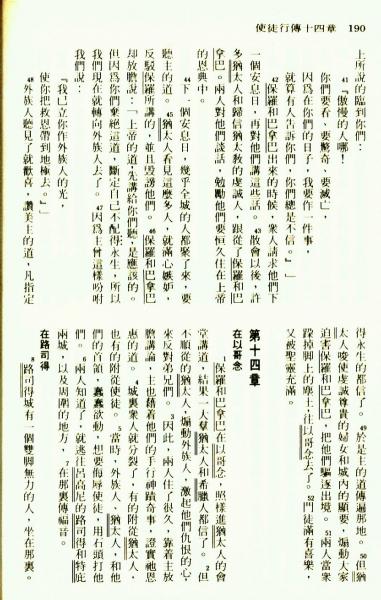 使徒行傳十四章 190
上所說的臨到你們：
41『傲慢的人哪！
你們要看，要驚奇，要滅亡，
因爲在你們的日子，我要作一件事，
就算有人告訴你們，你們總是不信。』」
42保羅和巴拿巴出來的時候，衆人請求他們下
一個安息日，再對他們講這些話。43散會以後，許
多猶太人和歸信猶太教的虔誠人，跟從了保羅和巴
拿巴。兩人對他們談話，勉勵他們要恒久住在上帝
的恩典中。
44下一個安息日，幾乎全城的人都聚了來，要
聽主的道。45猶太人看見這麼多人，就滿心嫉妒，
反駁保羅所講的，並且毀謗他們。46保羅和巴拿巴
却放膽說：「上帝的道先講給你們聽，是應該的。
但因爲你們棄絕這道，斷定自己不配得永生，所以
我們現在就轉向外族人去了。47因爲主曾這樣吩咐
我們說：
『我已立你作外族人的光，
使你把救恩帶到地極去。』」
48外族人聽見了就歡喜，讚美主的道，凡指定
得永生的都信了。49於是主的道傳遍那地。50但猶
太人唆使虔誠尊貴的婦女和城內的顯要，煽動大家
迫害保羅和巴拿巴，把他們驅逐出境。51兩人當衆
跺掉脚上的塵土，往以哥念去了。52門徒滿有喜樂，
又被聖靈充滿。
第十四章
在以哥念
1保羅和巴拿巴在以哥念，照樣進猶太人的會
堂講道，結果一大羣猶太人和希臘人都信了。2但
不順從的猶太人，煽動外族人，激起他們仇恨的心，
來反對弟兄們。3因此，兩人住了很久，靠着主放
膽講論，主也藉着他們的手行神蹟奇事，證實祂恩
惠的道。4城裏衆人就分裂了，有的附從猶太人，
也有的附從使徒。5當時，外族人、猶太人，和他
們的首領，蠢蠢欲動，想要侮辱使徒，用石頭打他
們。6兩人知道了，就逃往呂高尼的路司得和特庇
兩城，以及周圍的地方，7在那裏傳福音。
在路司得
8路司得城有一個雙脚無力的人，坐在那裏。